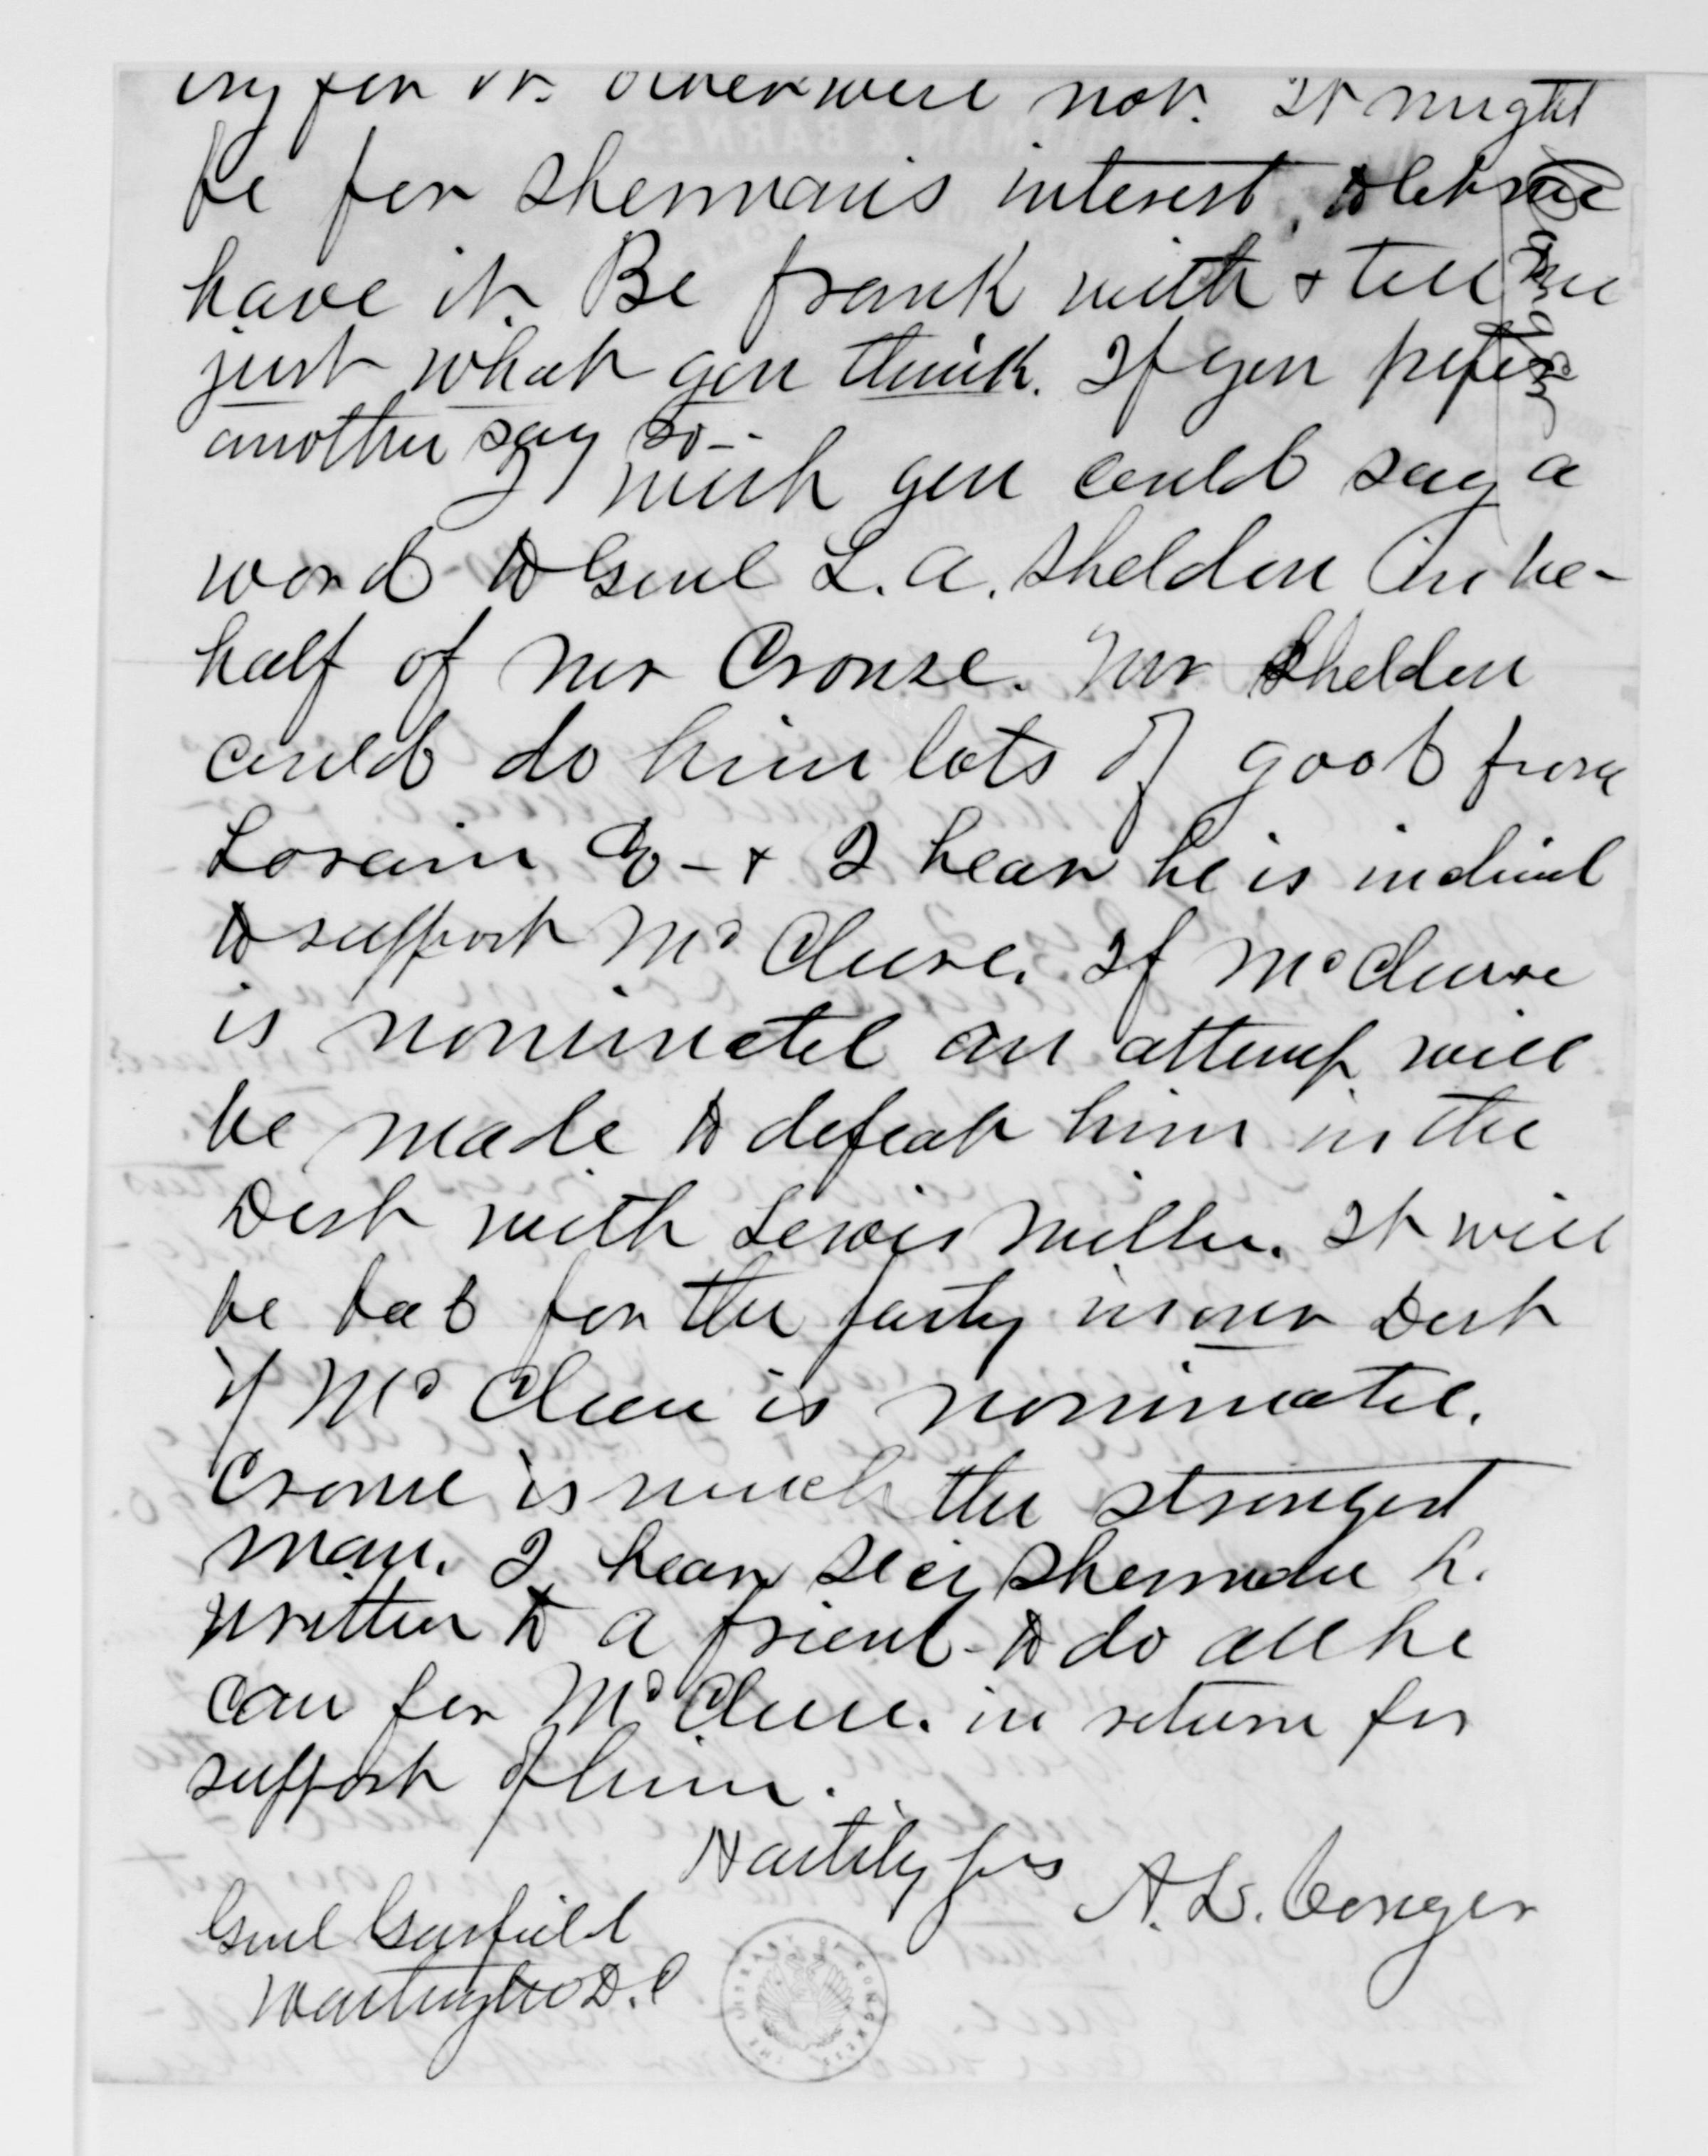 ing for it. Otherwise not. It might
be for Sherman's interest, to let me
have it. Be frank with & tell me
just what you think. If you prefer
another say so—
I wish you could say a
word to Genl L. A. Sheldon in be-
half of Mr Crouse. Mr Sheldon
could do him lots of good from
Lorain Co— & I hear he is inclined
to support McClure. If McClure
is nominated an attempt will
be made to defeat him in the
Dist with Lewis Miller. It will
be bad for the party in our Dist
if McClure is nominated.
Crouse is much the strongest
man. I hear Secy Sherman h.
written to a friend to do all he
can for McClure. in return for
support of him.
Hastily yrs A. L. Conger
Genl Garfield
Washington D.C
THE LIBRARY OF CONGRESS